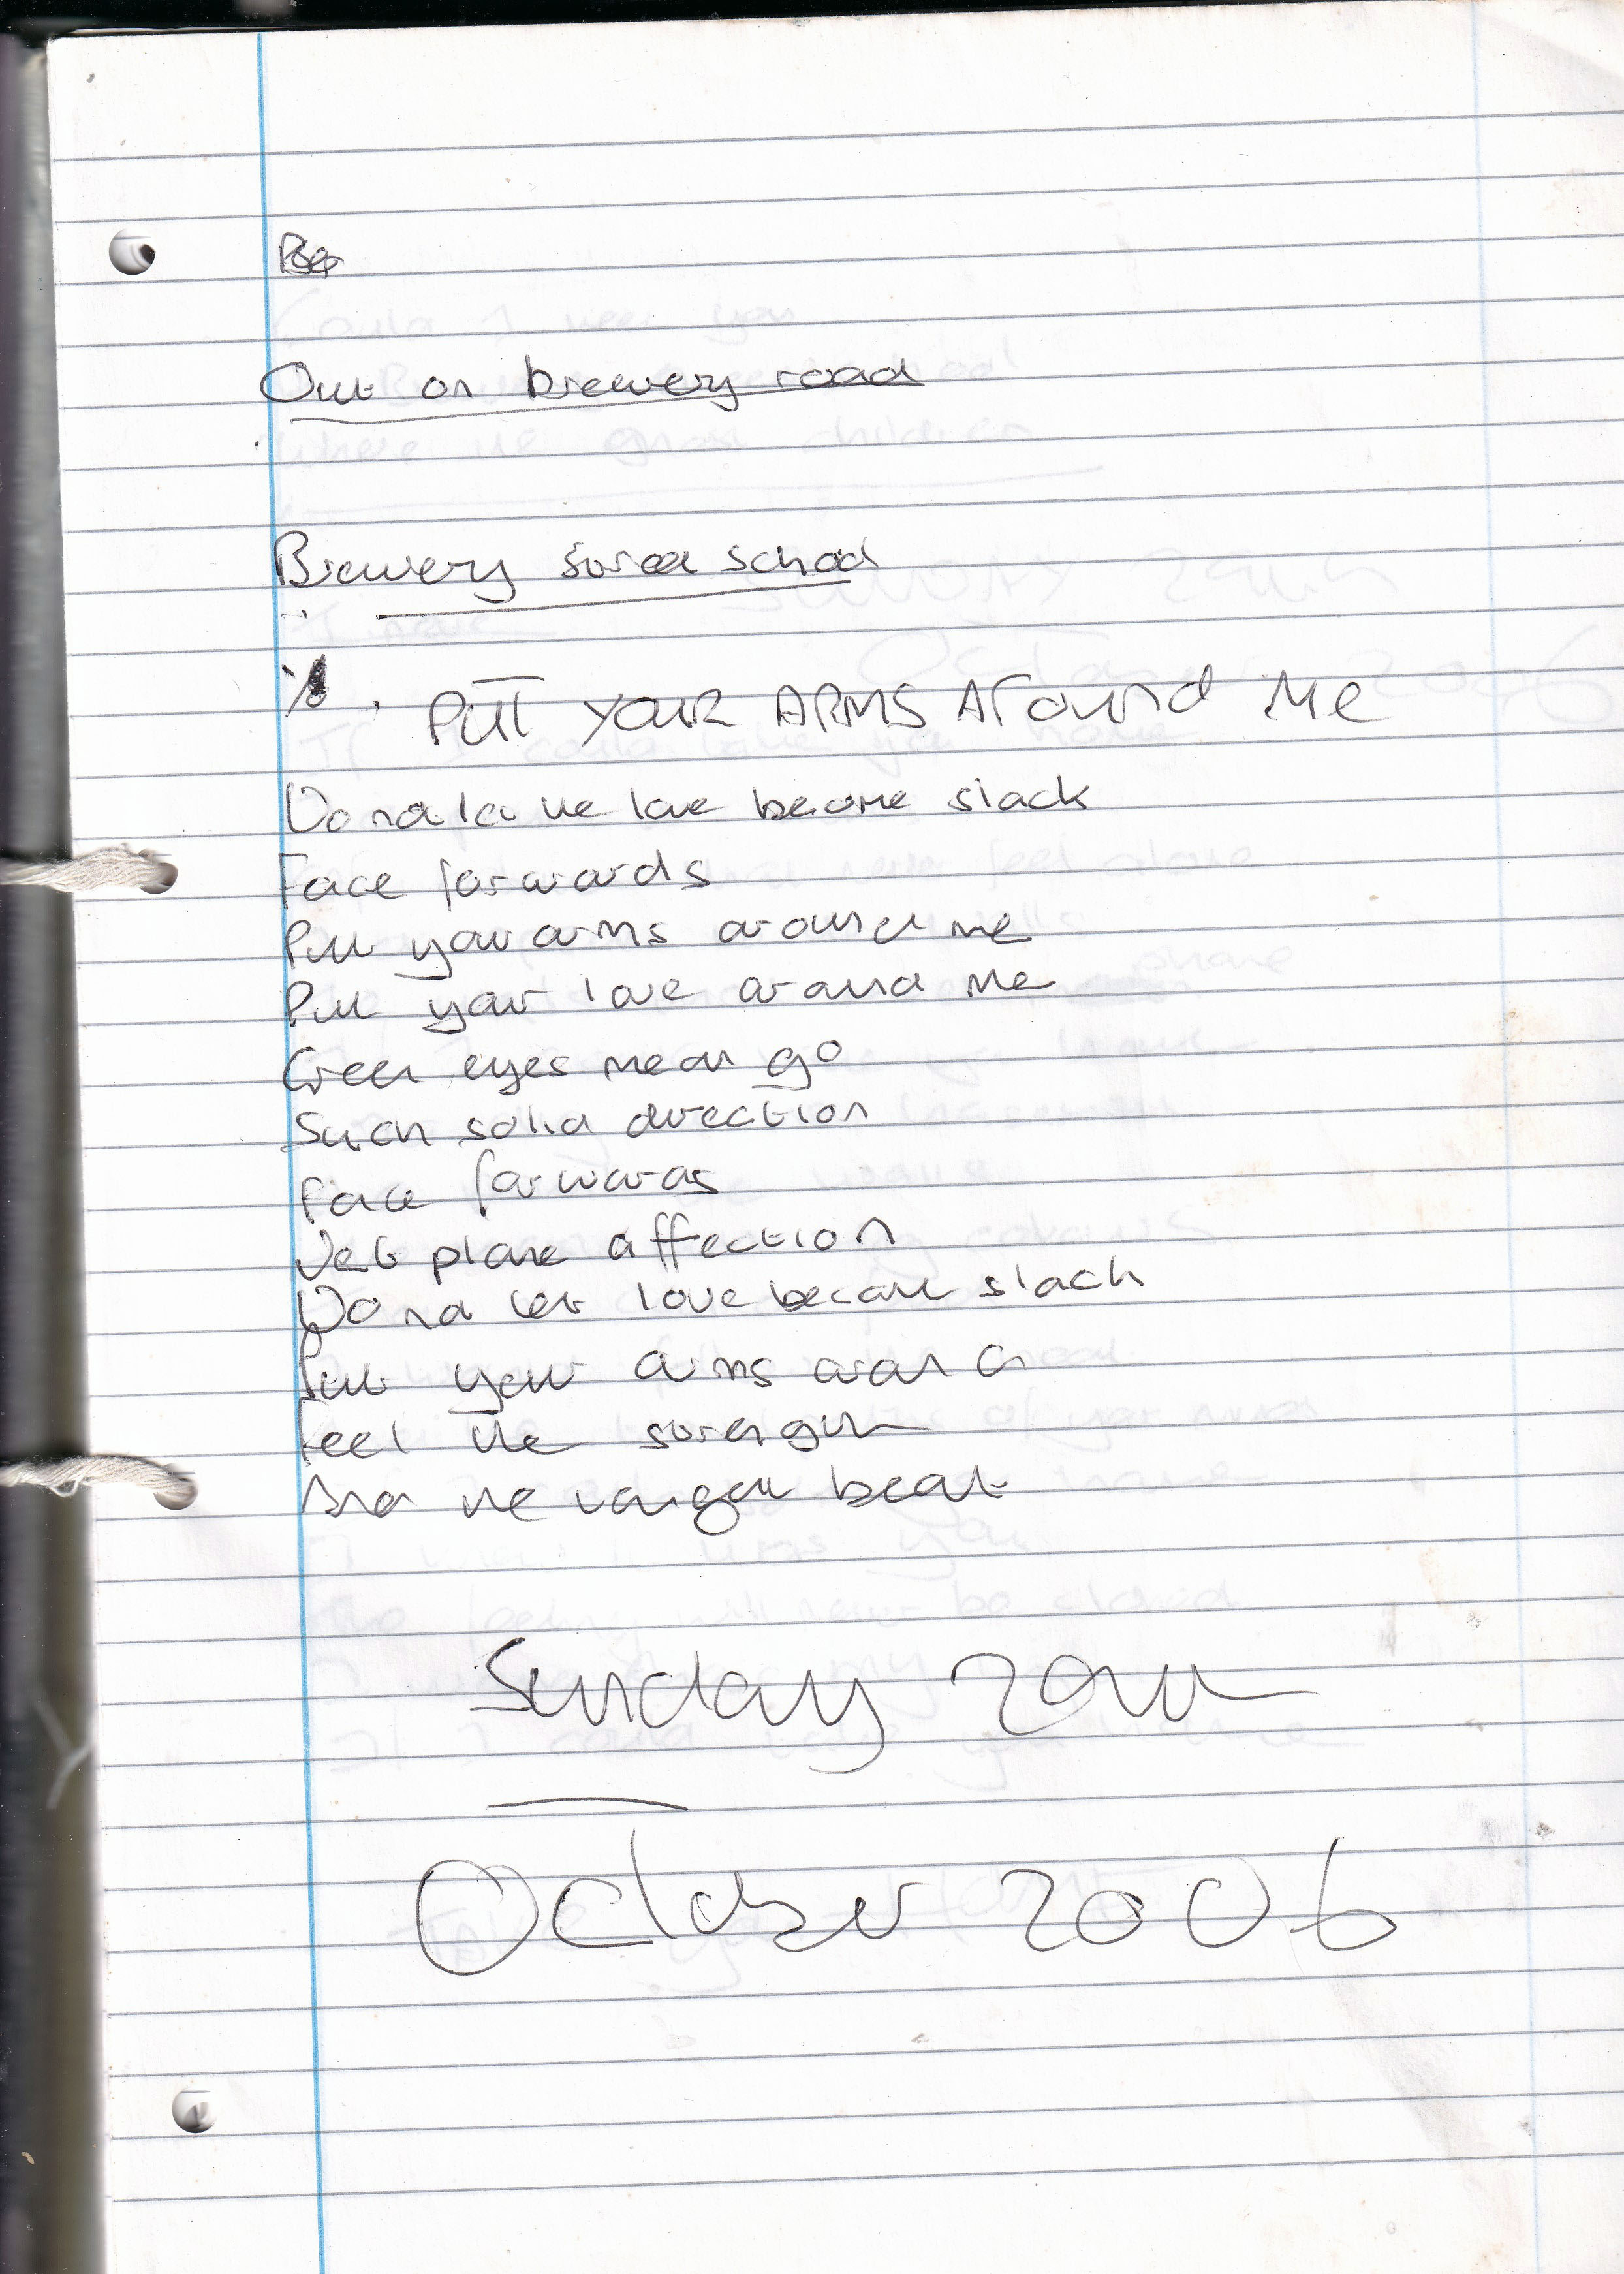 Out on brewery road
Brewery street school
PUT YOUR ARMS AROUND Me
Do not let the love become slack
Face forwards
Put your arms around me
Put your love around me
Green eyes mean go
Such solid direction
Face forwards
Jet plane affection
Do not let love become slack
Put your arms around
Feel the strength
And the beat
Sunday 29th
October 2006